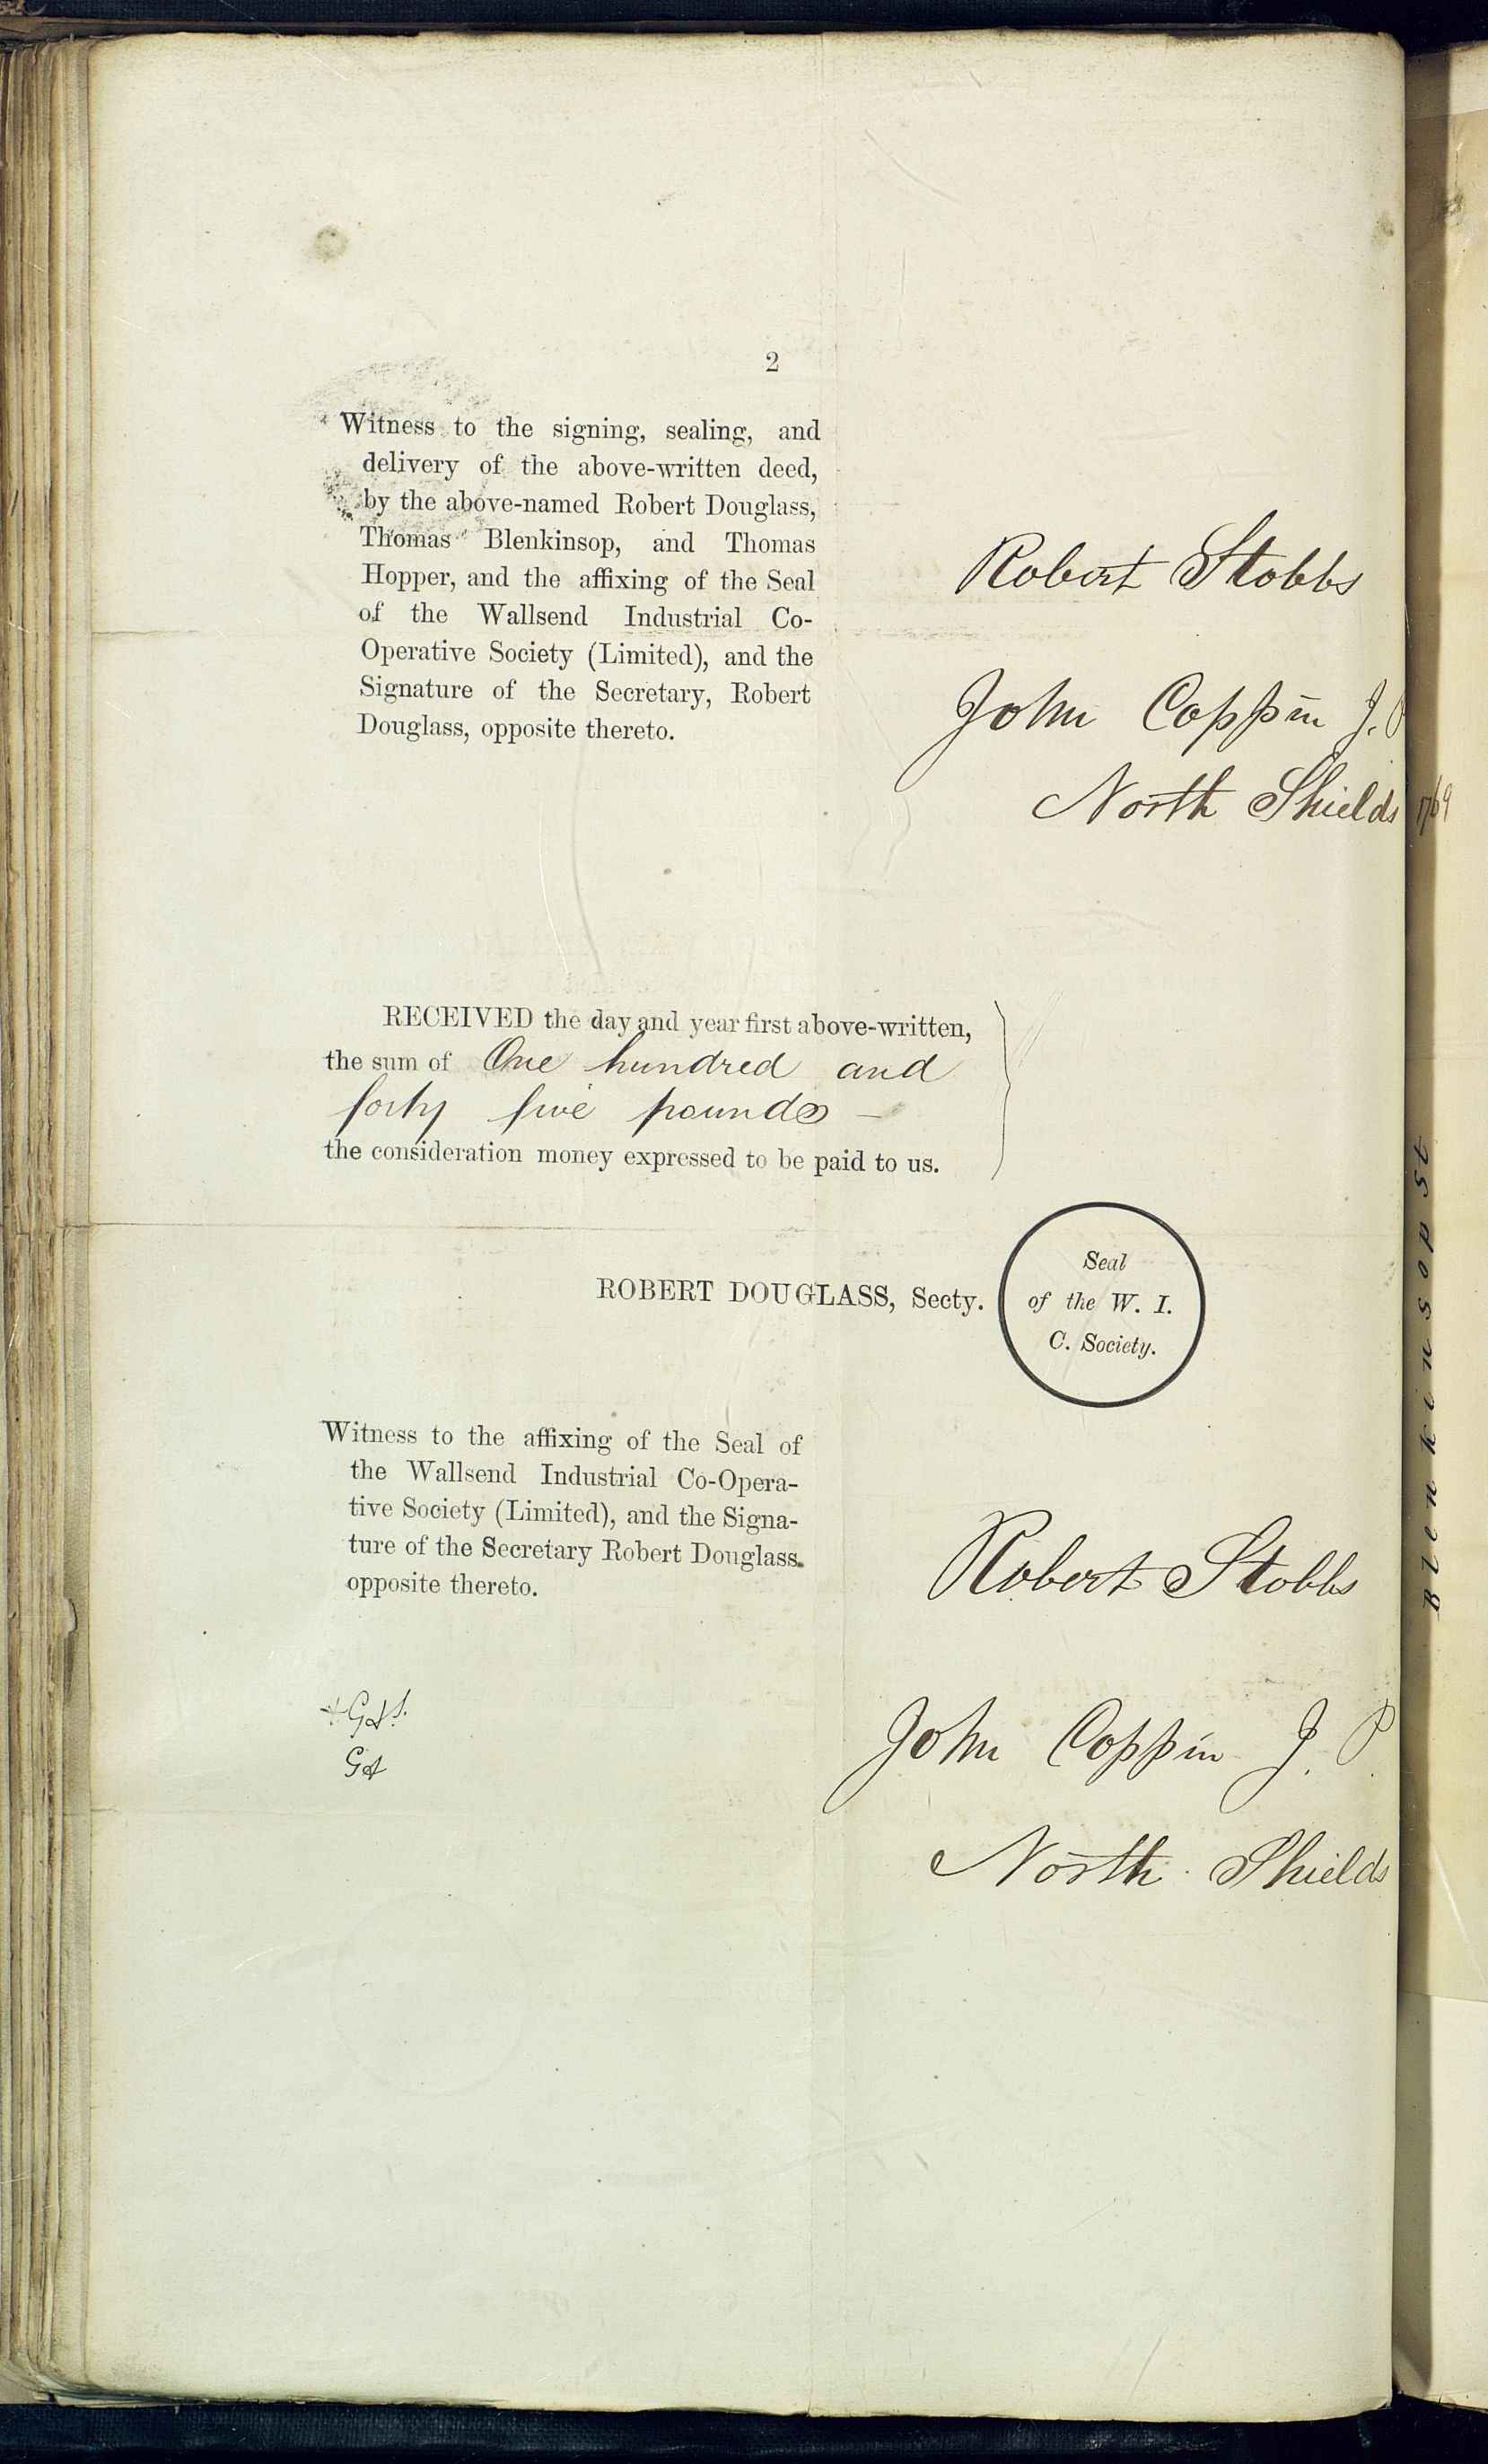 2
Witness to the signing, sealing, and
delivery of the above-written deed,
by the above-named Robert Douglass,
Thomas Blenkinsop, and Thomas
Hopper, and the affixing of the Seal
of the Wallsend Industrial Co-
Operative Society (Limited), and the
Signature of the Secretary, Robert
Douglass, opposite thereto.
Robert Stobbs
John Coppin J. P
North Shields
RECEIVED the day and year first above-written,
the sum of One hundred and
forty five pounds —
the consideration money expressed to be paid to us.
ROBERT DOUGLASS, Secty.
Seal
of the W. I.
C. Society.
Witness to the affixing of the Seal of
the Wallsend Industrial Co-Opera-
tive Society (Limited), and the Signa-
ture of the Secretary Robert Douglass.
opposite thereto.
Robert Stobbs
John Coppin J. P
North Shields
Blenkinsop St